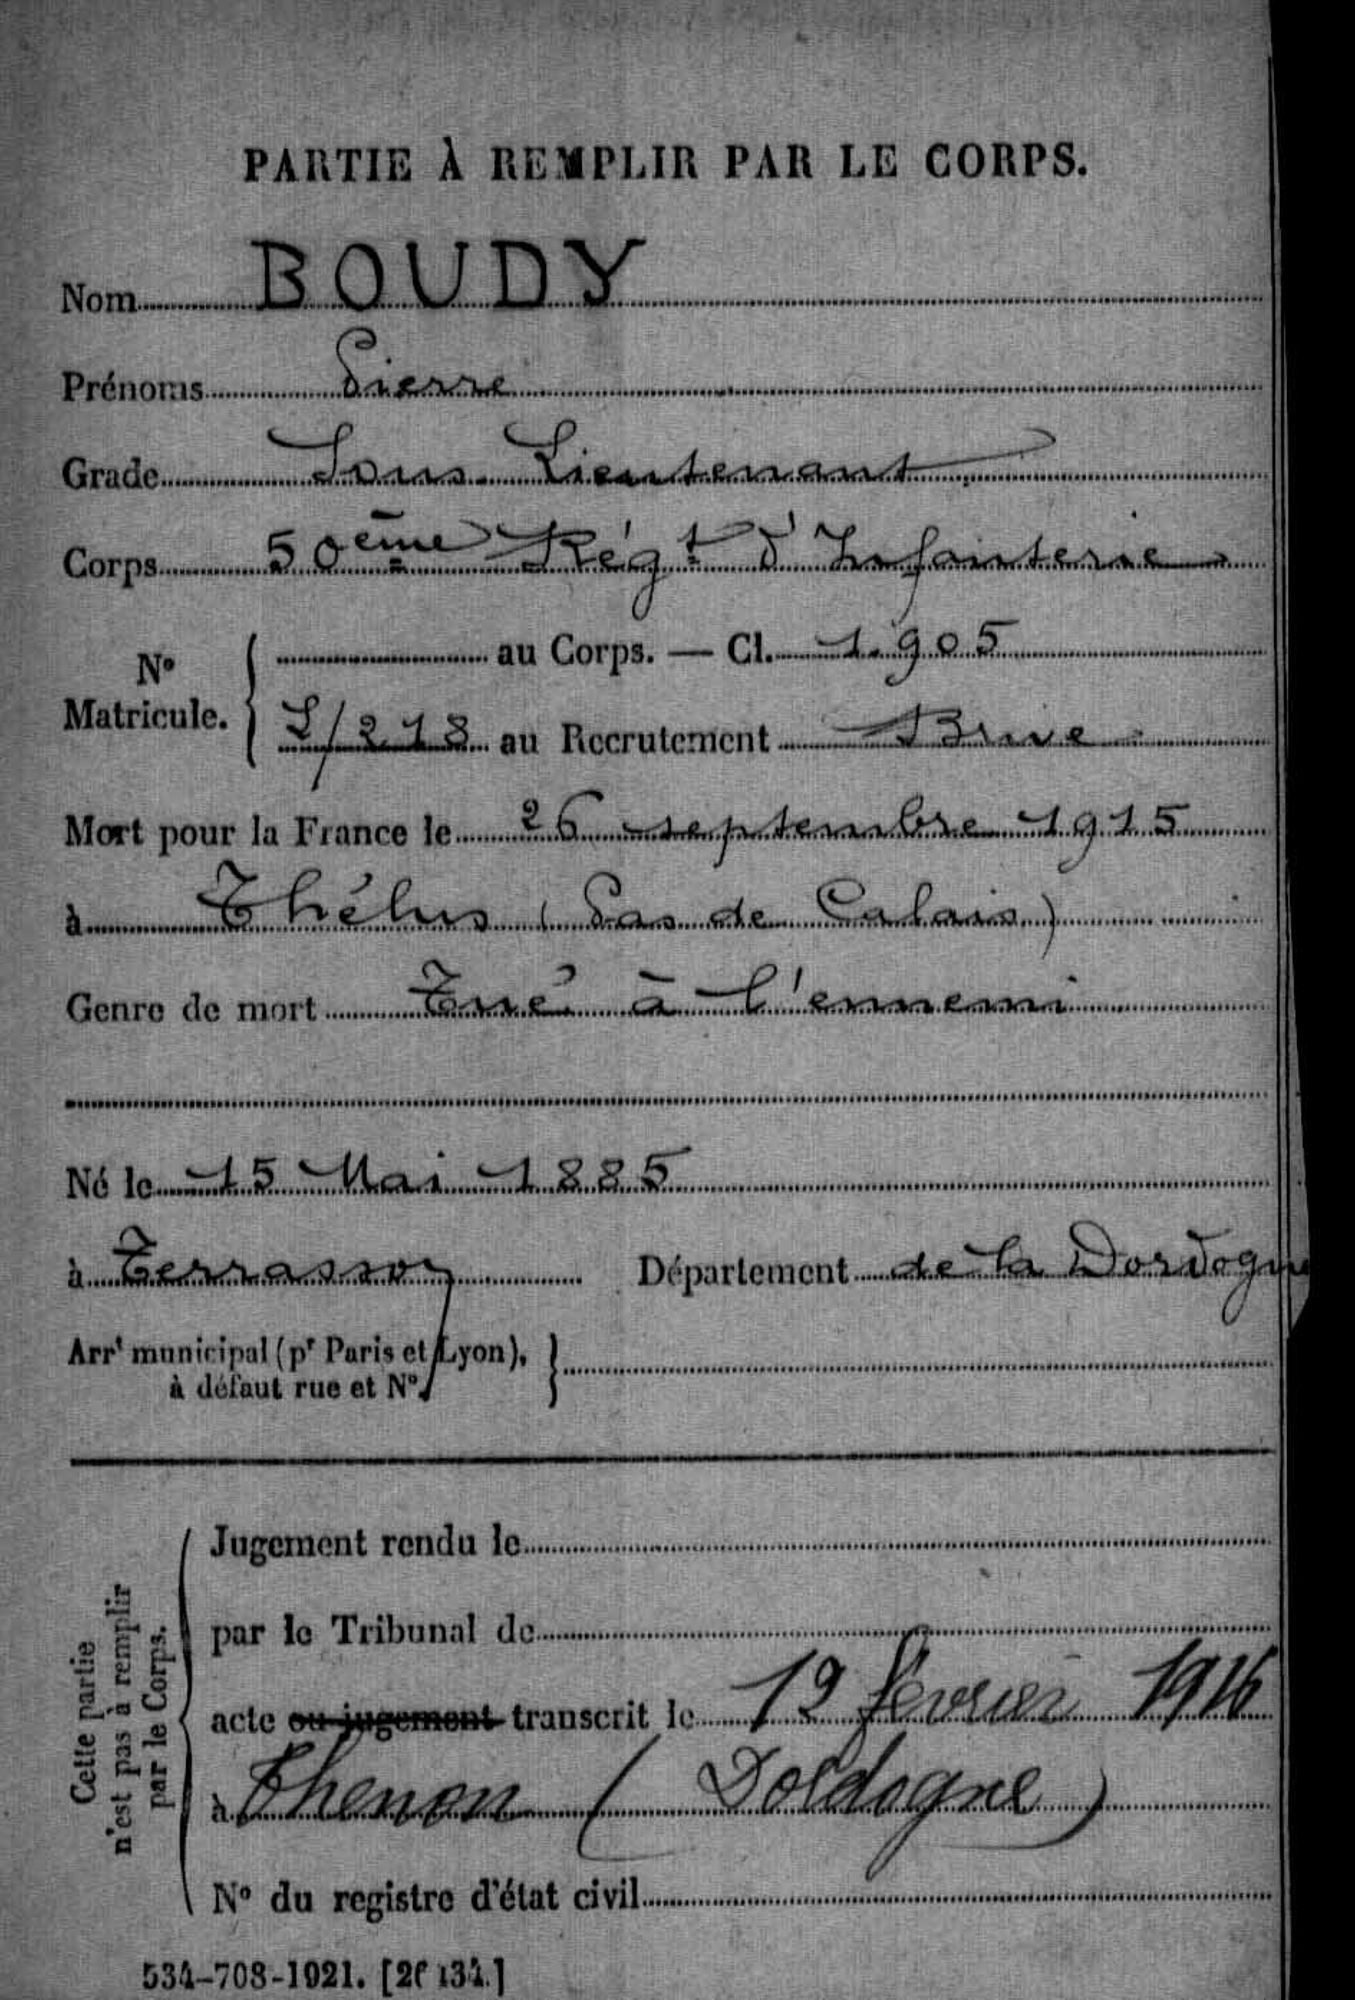 PARTIE À REMPLIR PAR LE CORPS.
Nom BOUDY
Prénoms Pierre
Grade Sous-Lieutenant
Corps 50ème Régt d'Infanterie
No Matricule. { au Corps. — Cl. 1.905
/218 au Recrutement Brive
Mort pour la France le 26 septembre 1915
à Thélus (Pas de Calais)
Genre de mort Tué à l'ennemi
Né le 15 Mai 1885
à Terrasson Département de la Dordogne
Arrt municipal (pr Paris et Lyon), }
à défaut rue et No.
Cette partie
n'est pas à remplir
par le Corps.
Jugement rendu le
par le Tribunal de
acte ou jugement transcrit le 12 février 1916
à Thenon (Dordogne)
No du registre d'état civil
534-708-1921.